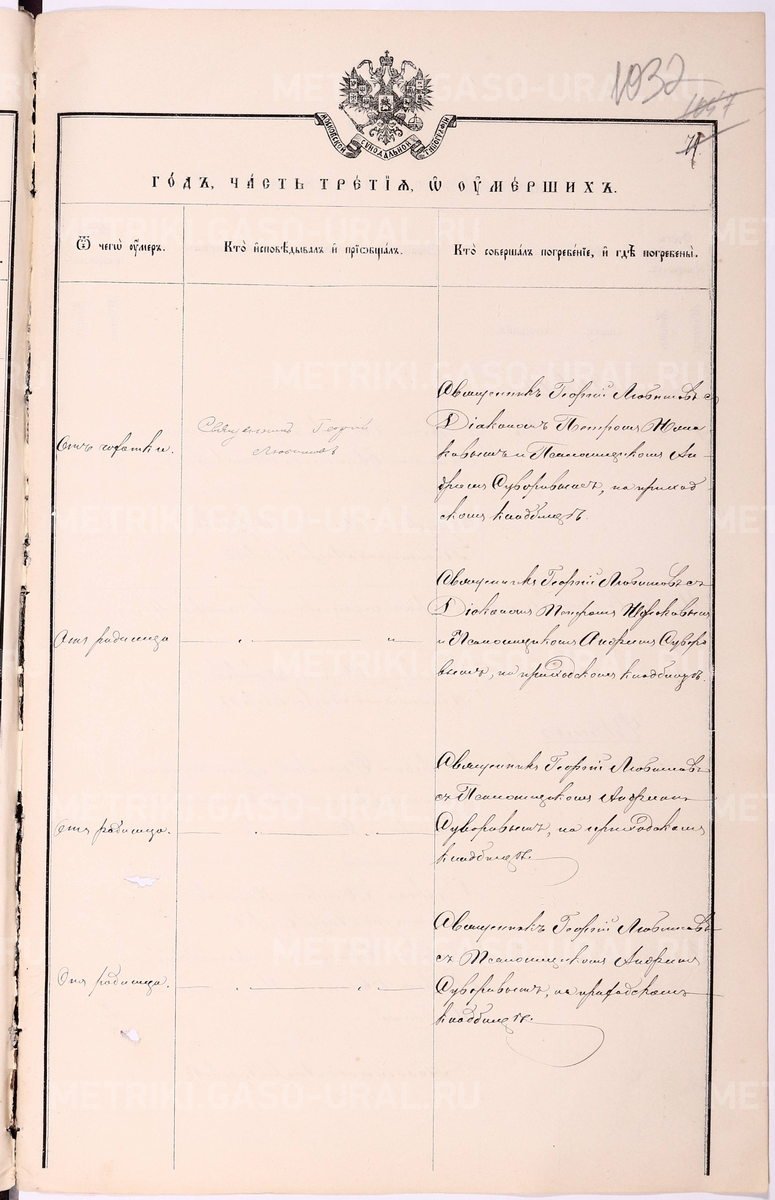 1032
1057
71
МОСКОВСКОЙ СѴНОДАЛЬНОЙ ТИПОГРАФІИ
ГО́ДЪ, ЧА́СТЬ ТРЕ́ТІѦ, Ѡ҆ ОУ҆МЕ́РШИХЪ.
Ѿ чегѡ̀ оу҆́меръ.
Кто̀ и҆сповѣ́дывалъ и҆ прїѡбща́лъ.
Кто̀ соверша́лъ погребе́нїе, и҆ гдѣ̀ погребены̀.
Отъ чахотки.
Священникъ Георгій
Любимовъ
Священникъ Георгій Любимовъ съ
Діакономъ Петромъ
и Псаломщикомъ Ан-
дреемъ Суворовымъ, на приход-
скомъ кладбищѣ.
Отъ родимца
Священникъ Георгій Любимовъ съ
Діакономъ Петромъ
и Псаломщикомъ Андреемъ Суворо-
вымъ, на приходскомъ кладбищѣ.
Отъ родимца.
Священникъ Георгій Любимовъ
съ Псаломщикомъ Андреемъ
Суворовымъ, на приходскомъ
кладбищѣ.
Отъ родимца.
Священникъ Георгій Любимовъ
съ Псаломщикомъ Андреемъ
Суворовымъ, на приходскомъ
кладбищѣ.
METRIKI.GASO-URAL.RU